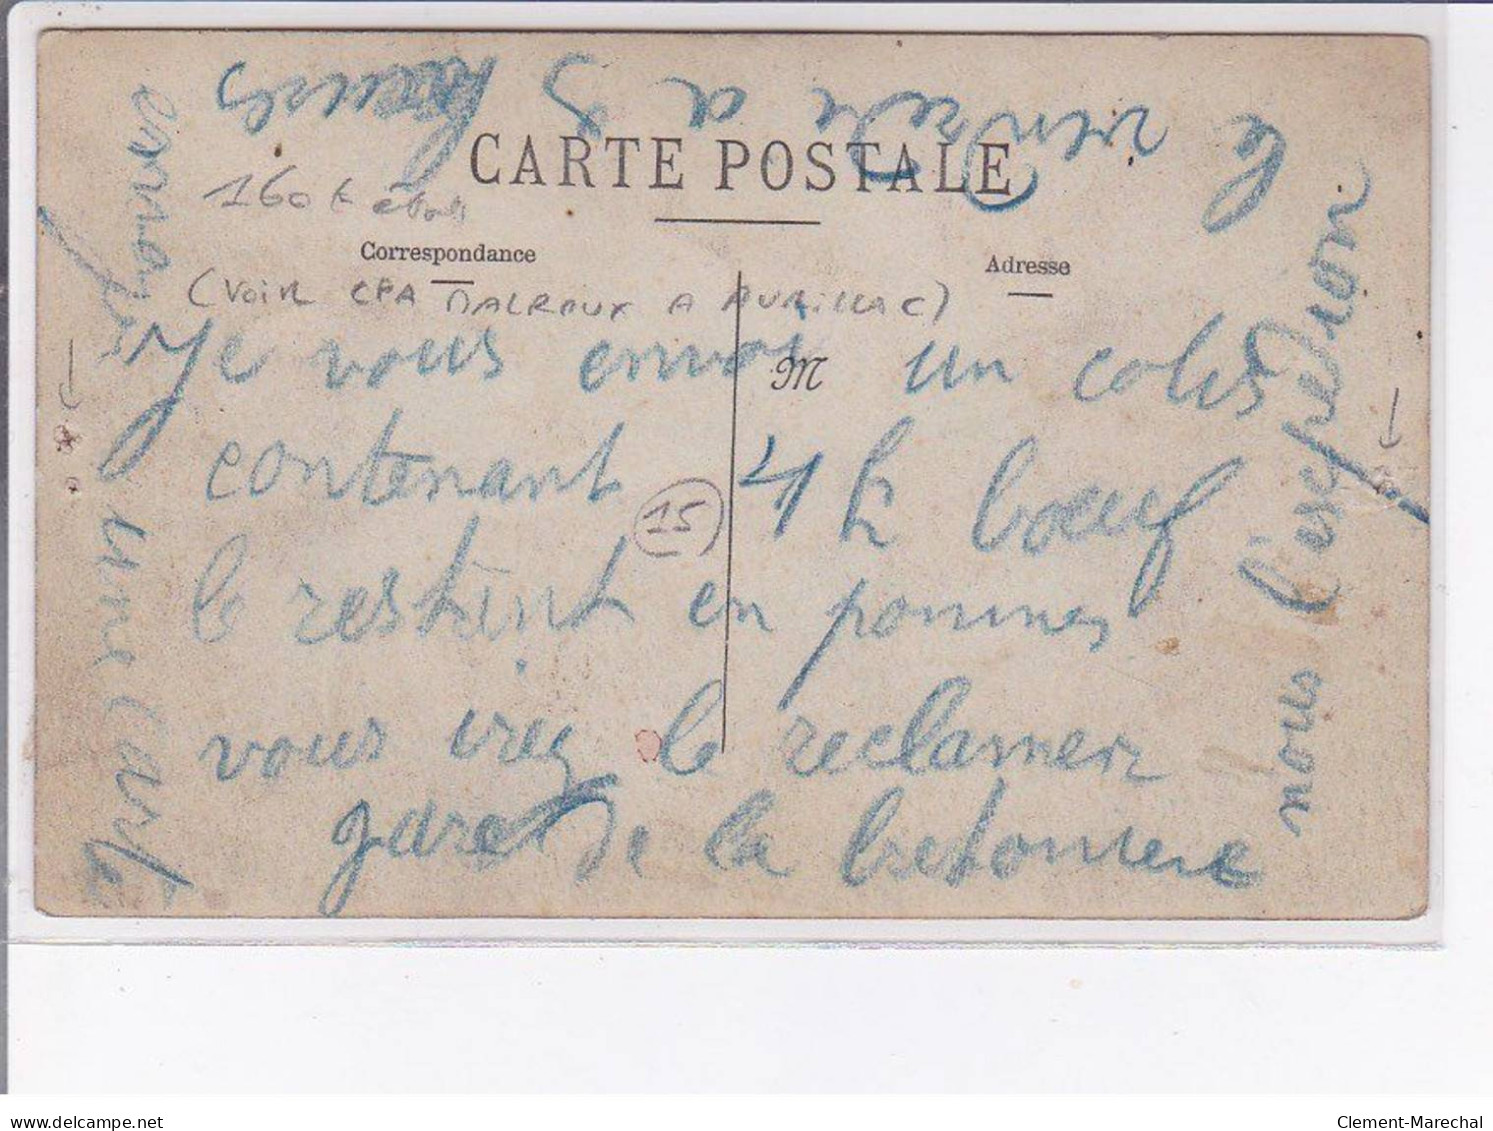 CARTE POSTALE
160 €
Correspondance
Adresse
(VOIR CPA MALROUX A AURILLAC)
M
15
Je vous envoi un colis
contenant 4 k boeuf
le restint en pommes
vous irez le reclamer
gare de la bretonnerie
nous l'expedion
le vendredi a 8 heures
envoyez une carte
delcampe.net
Clement-Marechal